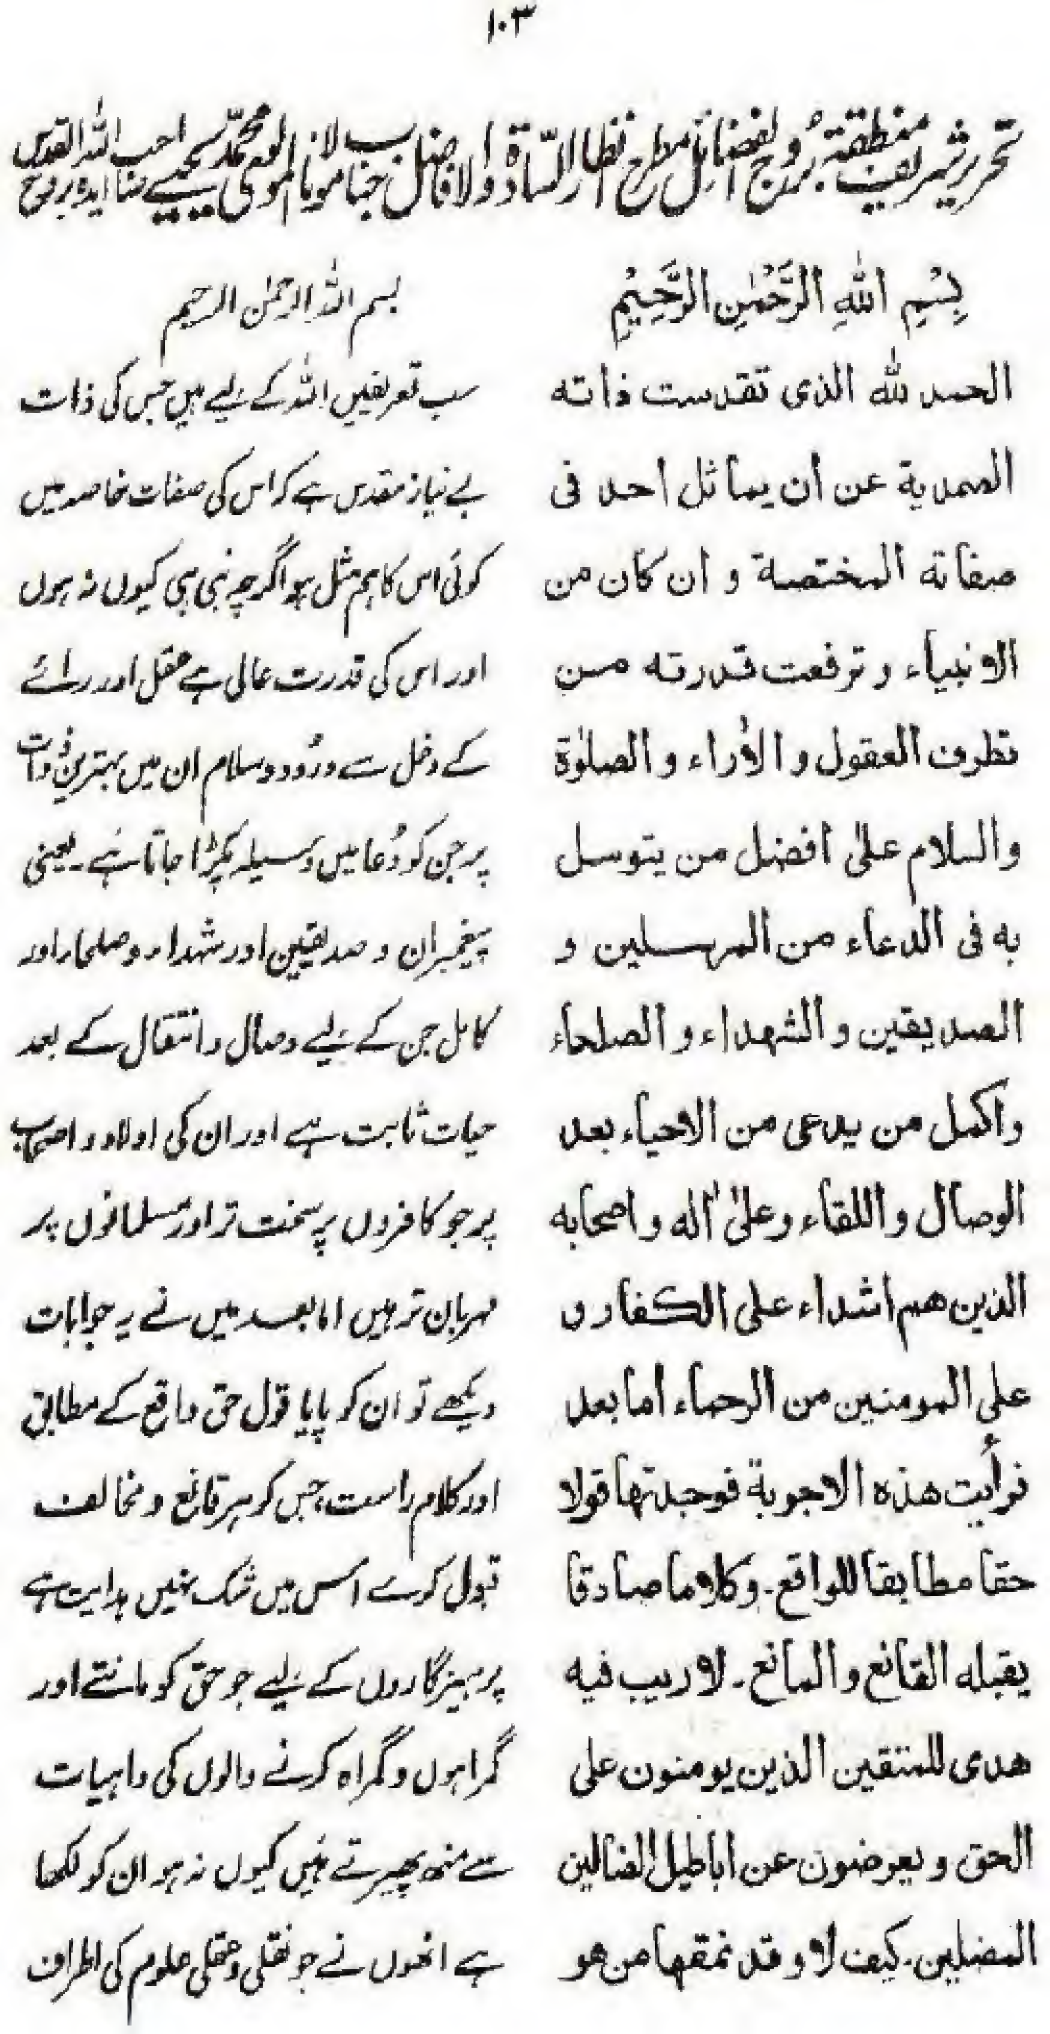 ۱۰۳
تحریر شریف منطقۃ بروج الفضائل مطرح انظار السادۃ والافاضل جناب مولانا المولوی محمد یحییٰ صاحب ایدہ اللہ بروح القدس
بِسْمِ اللهِ الرَّحْمٰنِ الرَّحِيْمِ
الحمد لله الذى تقدست ذاته
الصمدية عن ان يماثل احد فى
صفاته المختصة و ان كان من
الانبياء و ترفعت قدرته من
تطرف العقول و الأراء و الصلوٰة
والسلام علىٰ افضل من يتوسل
به فى الدعاء من المرسلين و
الصديقين و الشهداء و الصلحاء
و اكمل من يدعى من الاحياء بعد
الوصال و اللقاء و علىٰ أله و اصحابه
الذين هم اشداء على الكفار و
على المومنين من الرحماء اما بعد
فرأيت هذه الاجوبة فوجدتها قولا
حقا مطابقا للواقع۔ و كلاما صادقا
يقبله القانع و المانع۔ لا ريب فيه
هدى للمتقين الذين يومنون على
الحق و يعرضون عن اباطيل الضالين
المضلين۔ كيف لا و قد نمقها من هو
بسم اللہ الرحمٰن الرحیم
سب تعریفیں اللہ کے لیے ہیں جس کی ذات
بے نیاز مقدس ہے کہ اس کی صفات خاصہ میں
کوئی اس کا ہم مثل ہو اگرچہ نبی ہی کیوں نہ ہوں
اور اس کی قدرت عالی ہے عقل اور رائے
کے دخل سے درُود و سلام ان میں بہترین ذات
پر جن کو دُعا میں وسیلہ پکڑا جاتا ہے۔ یعنی
پیغمبران و صدیقین اور شہداء و صلحاء اور
کامل جن کے لیے وصال و انتقال کے بعد
حیات ثابت ہے اور ان کی اولاد و اصحاب
پر جو کافروں پر سخت تر اور مسلمانوں پر
مہربان تر ہیں اما بعد میں نے یہ جوابات
دیکھے تو ان کو پایا قول حق واقع کے مطابق
اور کلام راست، جس کو ہر قانع و مخالف
قبول کرے اس میں شک نہیں ہدایت ہے
پرہیزگاروں کے لیے جو حق کو مانتے اور
گمراہوں و گمراہ کرنے والوں کی واہیات
سے منھ پھیرتے ہیں کیوں نہ ہو ان کو لکھا
ہے انھوں نے جو نقلی و عقلی علوم کی اطراف